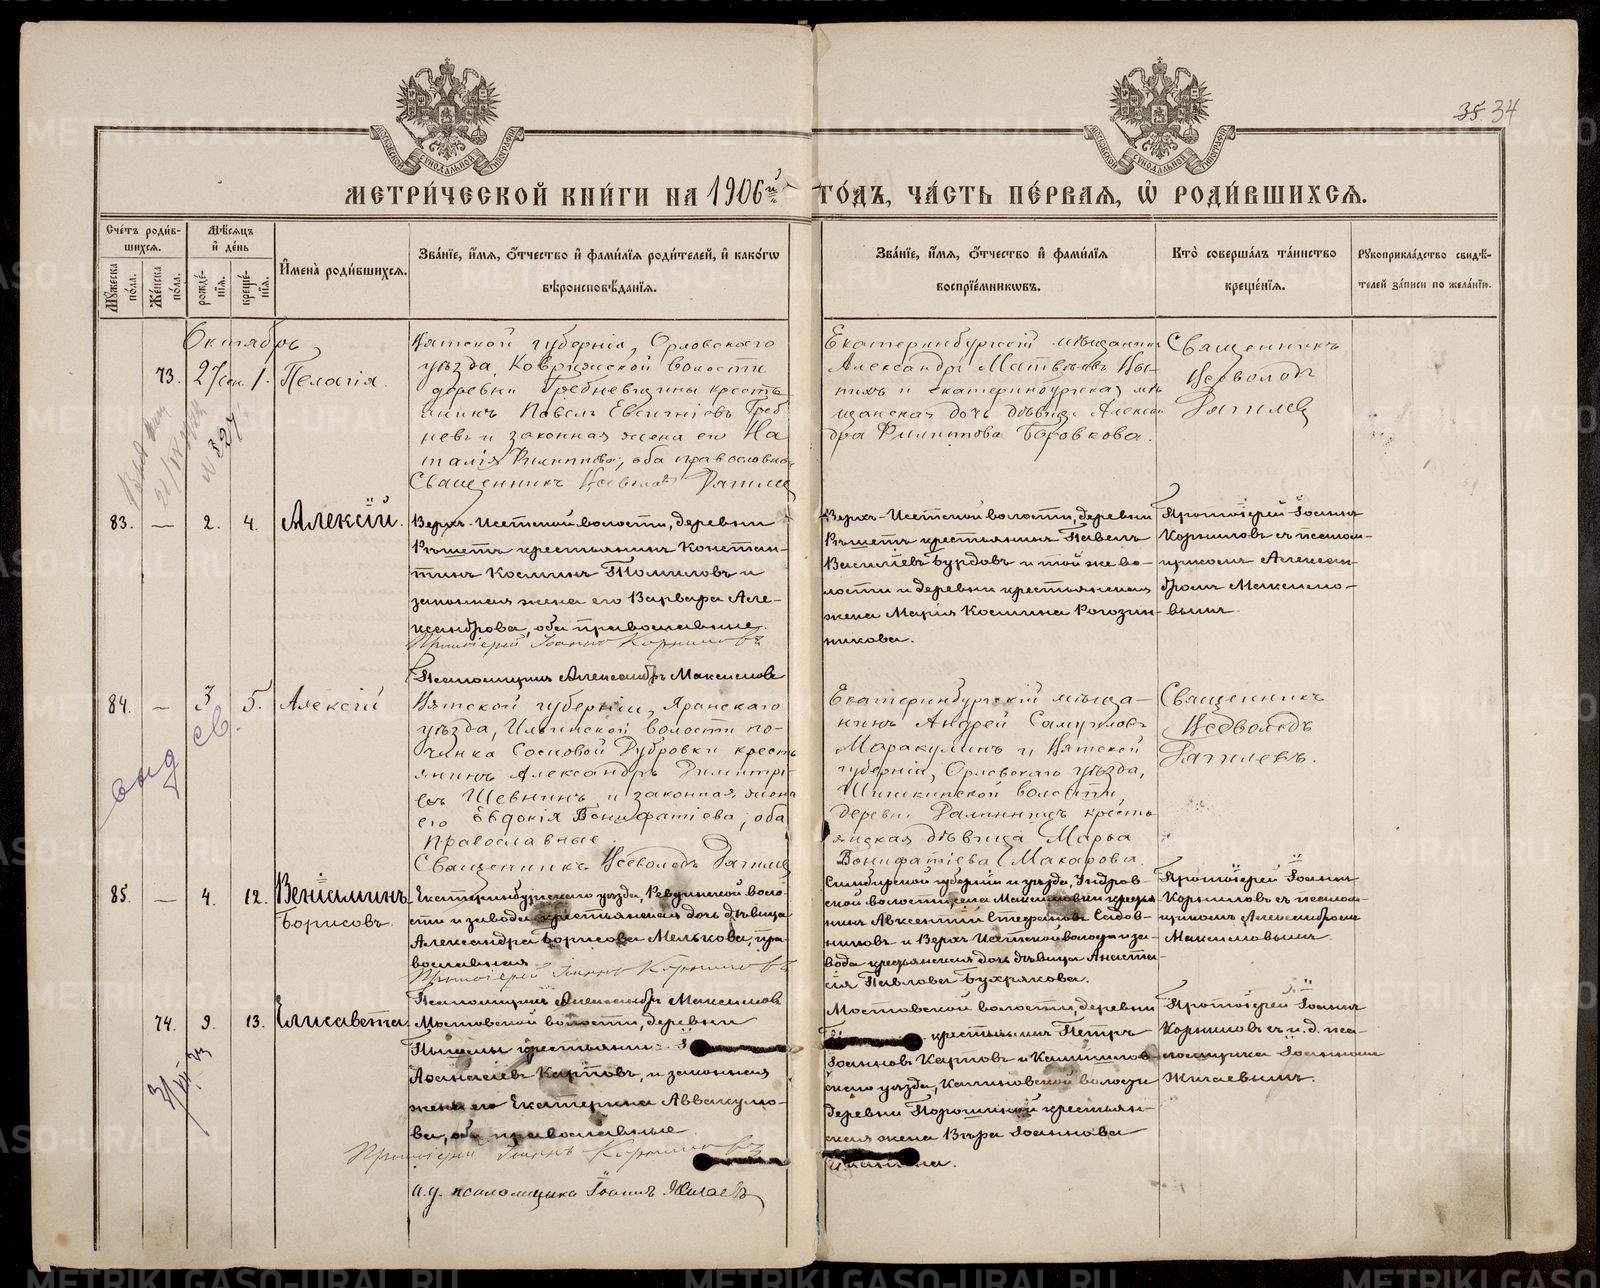 35. 34
МЕТРИ́ЧЕСКОЙ КНИ́ГИ НА 1906й ГО́ДЪ, ЧА́СТЬ ПЕ́РВАЯ, Ѡ РОДИ́ВШИХСЯ.
Сче́тъ роди́вшихся.
Му́жеска по́ла.
Же́нска по́ла.
Мѣ́сяцъ и҆ де́нь
рожде́нїя.
креще́нїя.
И҆мена̀ роди́вшихся.
Зва́нїе, и҆́мя, ѻ҆́тчество и҆ фами́лїя роди́телей, и҆ како́гѡ
вѣроисповѣ́данїя.
Зва́нїе, и҆́мя, ѻ҆́тчество и҆ фами́лїя
воспрїе́мникѡвъ.
Кто̀ соверша́лъ та́инство
креще́нїя.
Рукоприкла́дство свидѣ́-
телей за́писи по жела́нїю.
Октябрь
73. 27 сен. 1. Пелагія.
Вятской губерніи, Орловскаго
уѣзда, Ковержской волости
деревни Гребневщины кресть
янинъ Павелъ Евгеніевъ Греб
невъ и законная жена его На
талія Филиппова, оба православные
Священникъ Всеволодъ
Екатеринбургскій мѣщанинъ
Александръ Матвѣевъ
и екатеринбургская мѣ
щанская дочь дѣвица Алексан
дра Филиппова Боровкова.
Священникъ
Всеволодъ
№ 327
83. — 2. 4. Алексій.
Верхъ-Исетской волости, деревни
Рѣшетъ крестьянинъ Констан-
тинъ Косминъ Томиловъ и
законная жена его Варвара Але-
ксандрова, оба православные.
Протоіерей Іоаннъ Корниловъ
Псаломщикъ Александръ Максимовъ
Верхъ-Исетской волости, деревни
Рѣшетъ крестьянинъ Павелъ
Василіевъ Бурдовъ и той же во-
лости и деревни крестьянская
жена Марія Космина Рогозин-
никова.
Протоіерей Іоаннъ
Корниловъ съ псалом-
щикомъ Алексан-
дромъ Максимо-
вымъ.
84. — 3 5. Алексій
Вятской губерніи, Яранскаго
уѣзда, Ильинской волости по-
чинка Сосновой Дубровки кресть
янинъ Александръ Димитрі-
евъ Шевнинъ и законная жена
его Евдокія Вонифатіева, оба
православные
Священникъ Всеволодъ
Екатеринбургскій мѣща-
нинъ Андрей Самуиловъ
Маракулинъ и Вятской
губерніи, Орловскаго уѣзда,
Шишкинской волости,
деревни кресть
янская дѣвица Марѳа
Вонифатіева Макарова.
Священникъ
Всеволодъ
85. — 4. 12. Веніаминъ
Борисовъ.
Екатеринбургскаго уѣзда, Ревдинской воло-
сти и завода крестьянская дочь дѣвица
Александра Борисова Мелькова, пра-
вославная
Протоіерей Іоаннъ Корниловъ
Псаломщикъ Александръ Максимовъ
Симбирской губерніи и уѣзда,
ской волости, села крестья
нинъ Авксентій Стефановъ Садов-
никовъ и Верхъ Исетской волости и за-
вода крестьянская дочь дѣвица Анаста-
сія Павлова Бухрякова.
Протоіерей Іоаннъ
Корниловъ съ псалом-
щикомъ Александромъ
Максимовымъ.
74. 9. 13. Елисавета.
Мостовской волости, деревни
Пышмы крестьянинъ
Аѳанасіевъ Карповъ, и законная
жена его Екатерина Аввакумо-
ва, оба православные.
Протоіерей Іоаннъ Корниловъ
и.д. псаломщика Іоаннъ
Мостовской волости, деревни
крестьянинъ Петръ
Іоанновъ Карповъ и Камышлов-
скаго уѣзда, Калиновской волости
деревни Порошиной крестьян-
ская жена Вѣра Іоаннова
Протоіерей Іоаннъ
Корниловъ съ и.д. пса-
ломщика Іоанномъ
METRIKI.GASO-URAL.RU